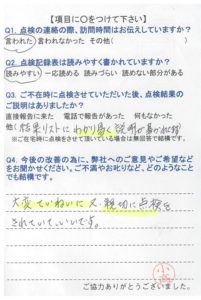 【項目に○をつけて下さい】
Q1. 点検の連絡の際、訪問時間はお伝えしていますか?
言われた 言われなかった その他( )
Q2. 点検記録表は読みやすく書かれていますか?
読みやすい 一応読める 読みづらい 読めない部分がある
Q3. ご不在時に点検させていただいた後、点検結果の
ご説明はありましたか?
直接報告に来た 電話で報告があった 何もなかった
他( 結果リストにわかり易く説明が書かれ
※ご在宅時に点検をさせて頂いている場合は無回答で結構です。
Q4. 今後の改善の為に、弊社へのご意見やご希望など
をお聞かせください。ご不満やお叱りなど、どのようなこと
でも結構です。
大変ていねいに又、親切に点検を
されていて、いいです。
ご協力ありがとうございました。